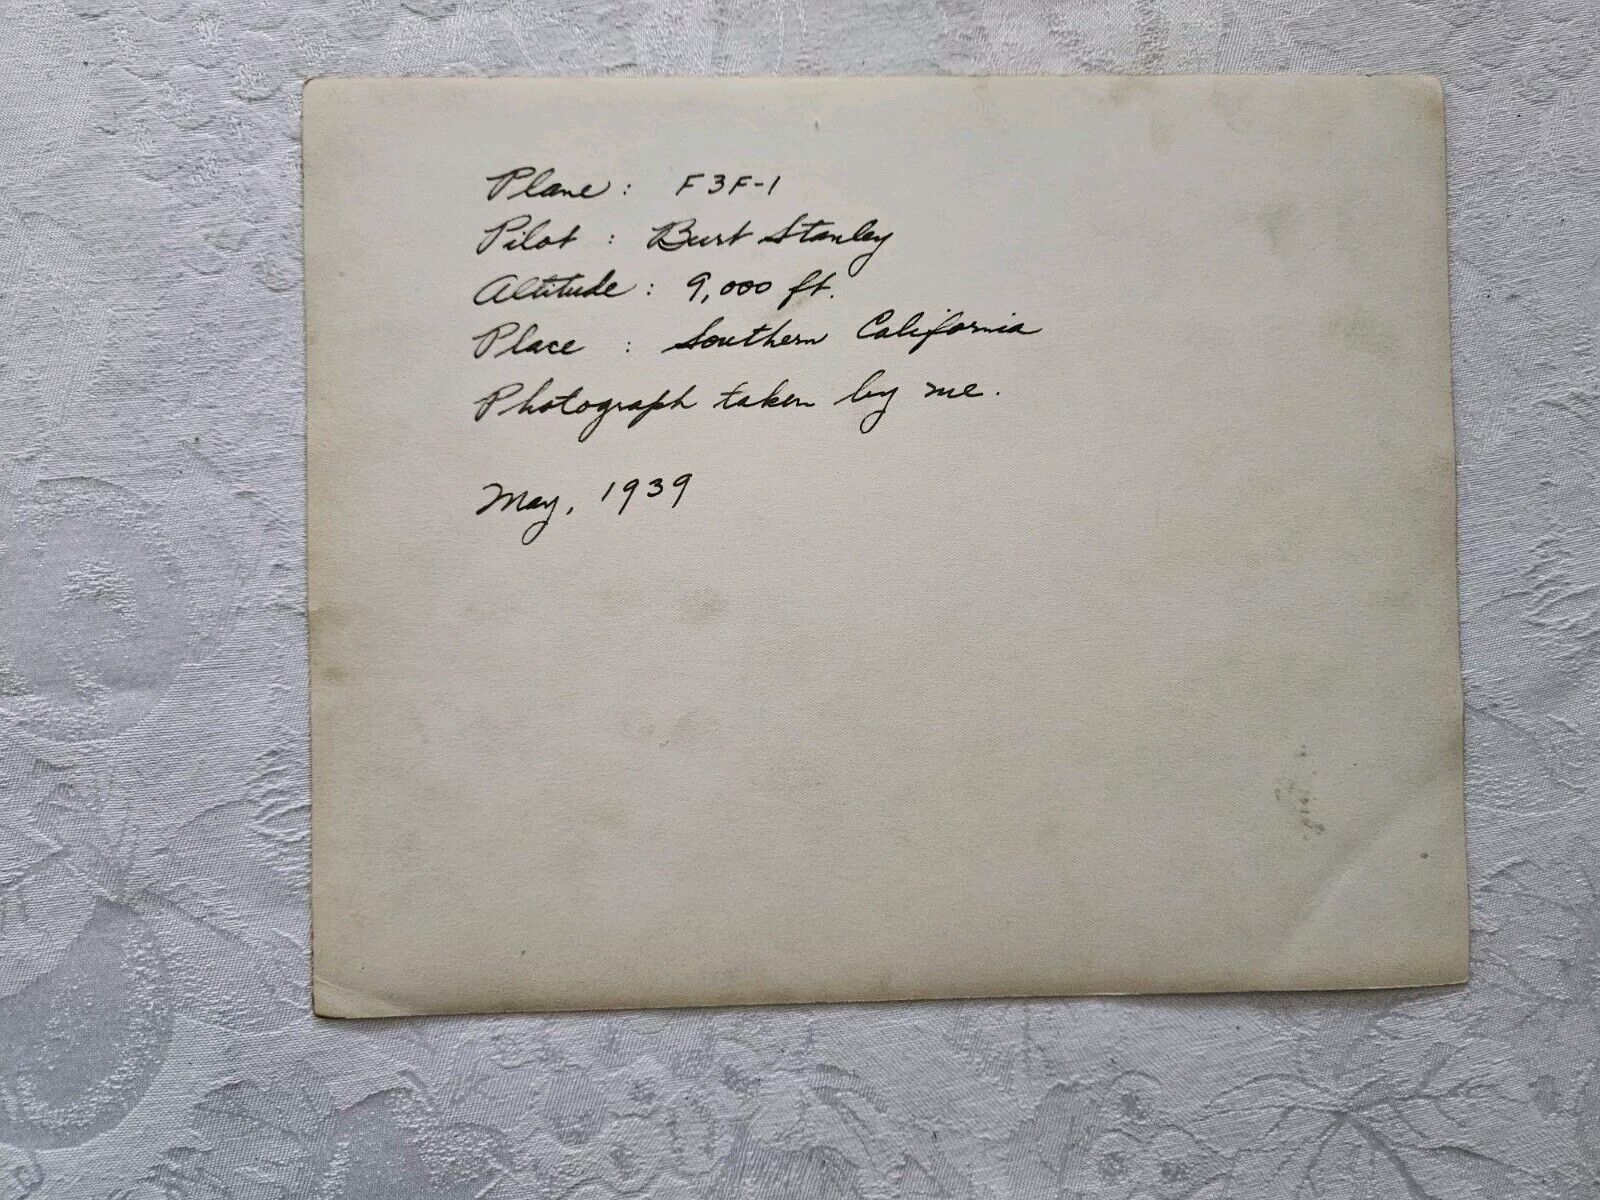 Plane : F3F-1
Pilot : Burt Stanley
Altitude : 9,000 ft.
Place : Southern California
Photograph taken by me.
May, 1939